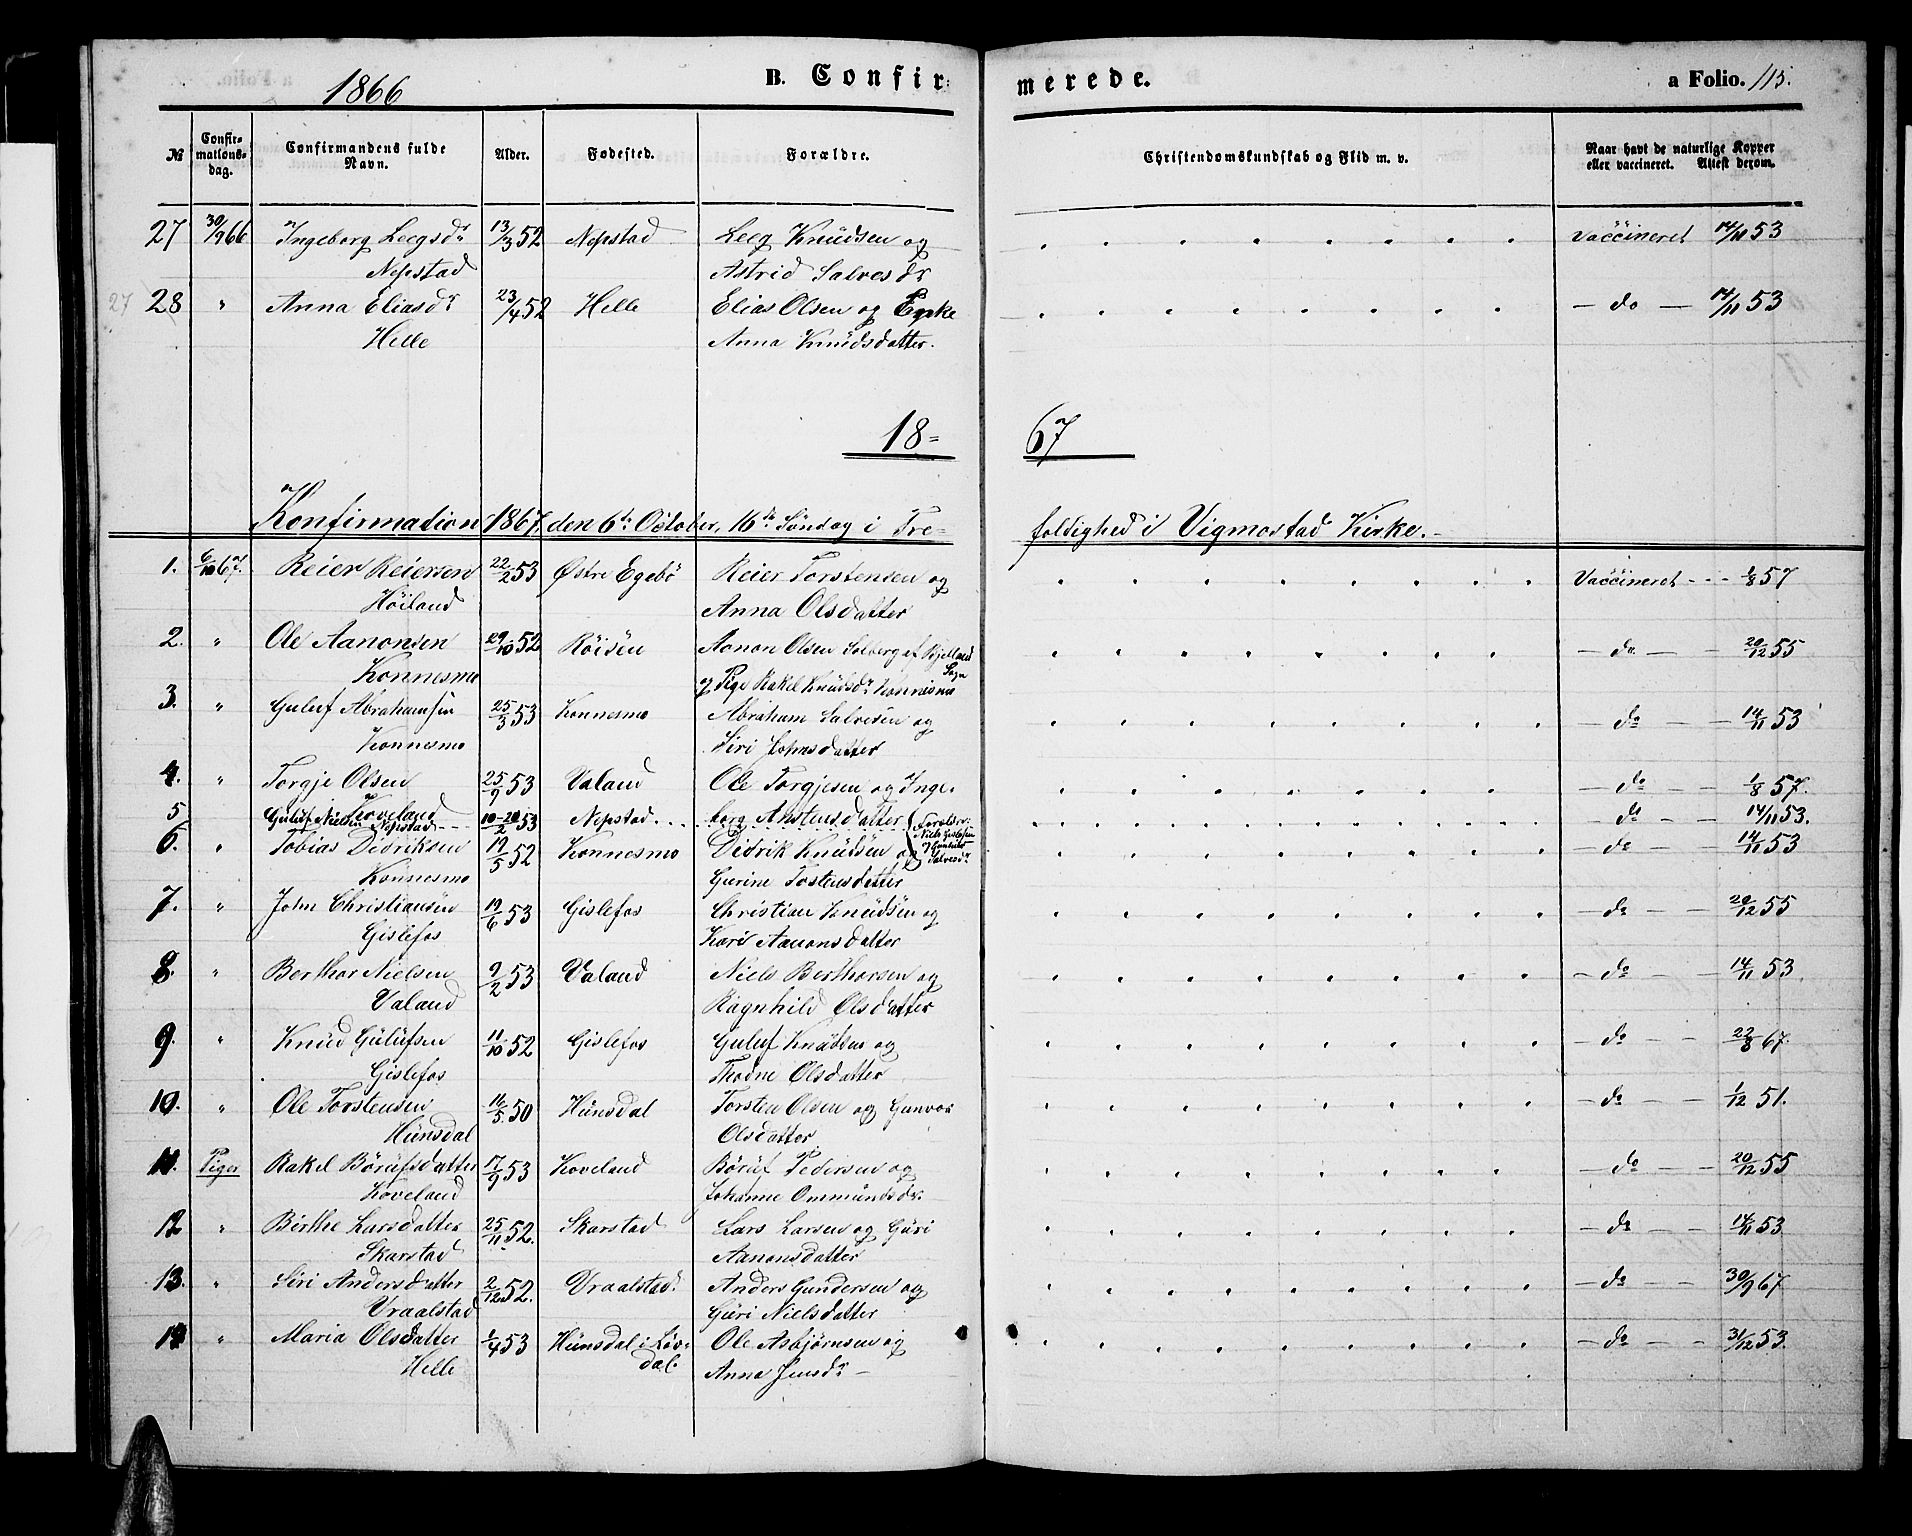 1866 B. Confirmerede. a Folio. 115.
№ Confirmationsdag. Confirmandens fulde Navn. Alder. Fødested. Forældre. Christendomskundskab og Flid m. v. Naar havt de naturlige Kopper eller vaccineret. Attest derom.
27 30/9 66 Ingeborg Leegsdr 13/3 52 Nepstad Leeg Knudsen og Vaccineret 14/11 53
Nepstad Astrid Salvesdr
27 28 " Anna Eliasdr 23/4 52 Helle Elias Olsen og Enke — do — 14/11 53
Helle Anna Knudsdatter.
18= 67
Konfirmation 1867 den 6te October, 16de Søndag i Trefoldighed i Vigmostad Kirke.
1. 6/10 67. Reier Reiersen 22/2 53 Østre Egebø Reier Torstensen og Vaccineret - - - 1/8 57
Høiland Anna Olsdatter
2. " Ole Aanonsen 29/10 52 Röisen Aanon Olsen Solberg af Bjelland Sogn — do — 20/12 55
Konnesmo og Pige Rakel Knudsdr Konnesmo
3. " Guluf Abrahamsen 25/3 53 Konnesmo Abraham Salvesen og — do — 14/11 53
Konnesmo Siri Johnsdatter
4. " Torgje Olsen 25/9 53 Valand Ole Torgjesen og Inge- — do — 1/8 57.
Koveland borg Anstensdatter
5 Guluf Nielsen Nepstad 10-20/2 53 Nepstad Forældre: Niels Gislesen og Gunhild Salvesdr — do — 14/11 53.
6. " Tobias Didriksen 19/5 52 Konnesmo Didrik Knudsen og — do — 14/11 53
Konnesmo Gurine Tostensdatter
7. " John Christiansen 19/6 53 Gislefos Christian Knudsen og — do — 20/12 55
Gislefos Kari Aanonsdatter
8. " Berthor Nielsen 9/2 53 Valand Niels Berthorsen og — do — 14/11 53
Valand Ragnhild Olsdatter
9. " Knud Gulufsen 11/10 52 Gislefos Guluf Knudsen og — do — 22/8 67.
Gislefos Thodne Olsdatter
10. " Ole Torstensen 16/5 50 Hunsdal Torsten Olsen og Gunvor — do — 1/12 51.
Hunsdal Olsdatter
11. Piger Rakel Börufsdatter 17/9 53 Koveland Böruf Pedersen og — do — 20/12 55
Koveland Johanne Ommundsdr.
12 " Birthe Larsdatter 25/11 52. Skarstad Lars Larsen og Guri — do — 14/11 53
Skarstad Aanonsdatter
13. " Siri Andersdatter 2/12 52. Vraalstad Anders Gundersen og — do — 30/9 67
Vraalstad Guri Nielsdatter
14 " Maria Olsdatter 1/4 53 Hunsdal i Løv- Ole Asbjørnsen og — do — 31/12 53.
Helle dal. Anna Jensdr —